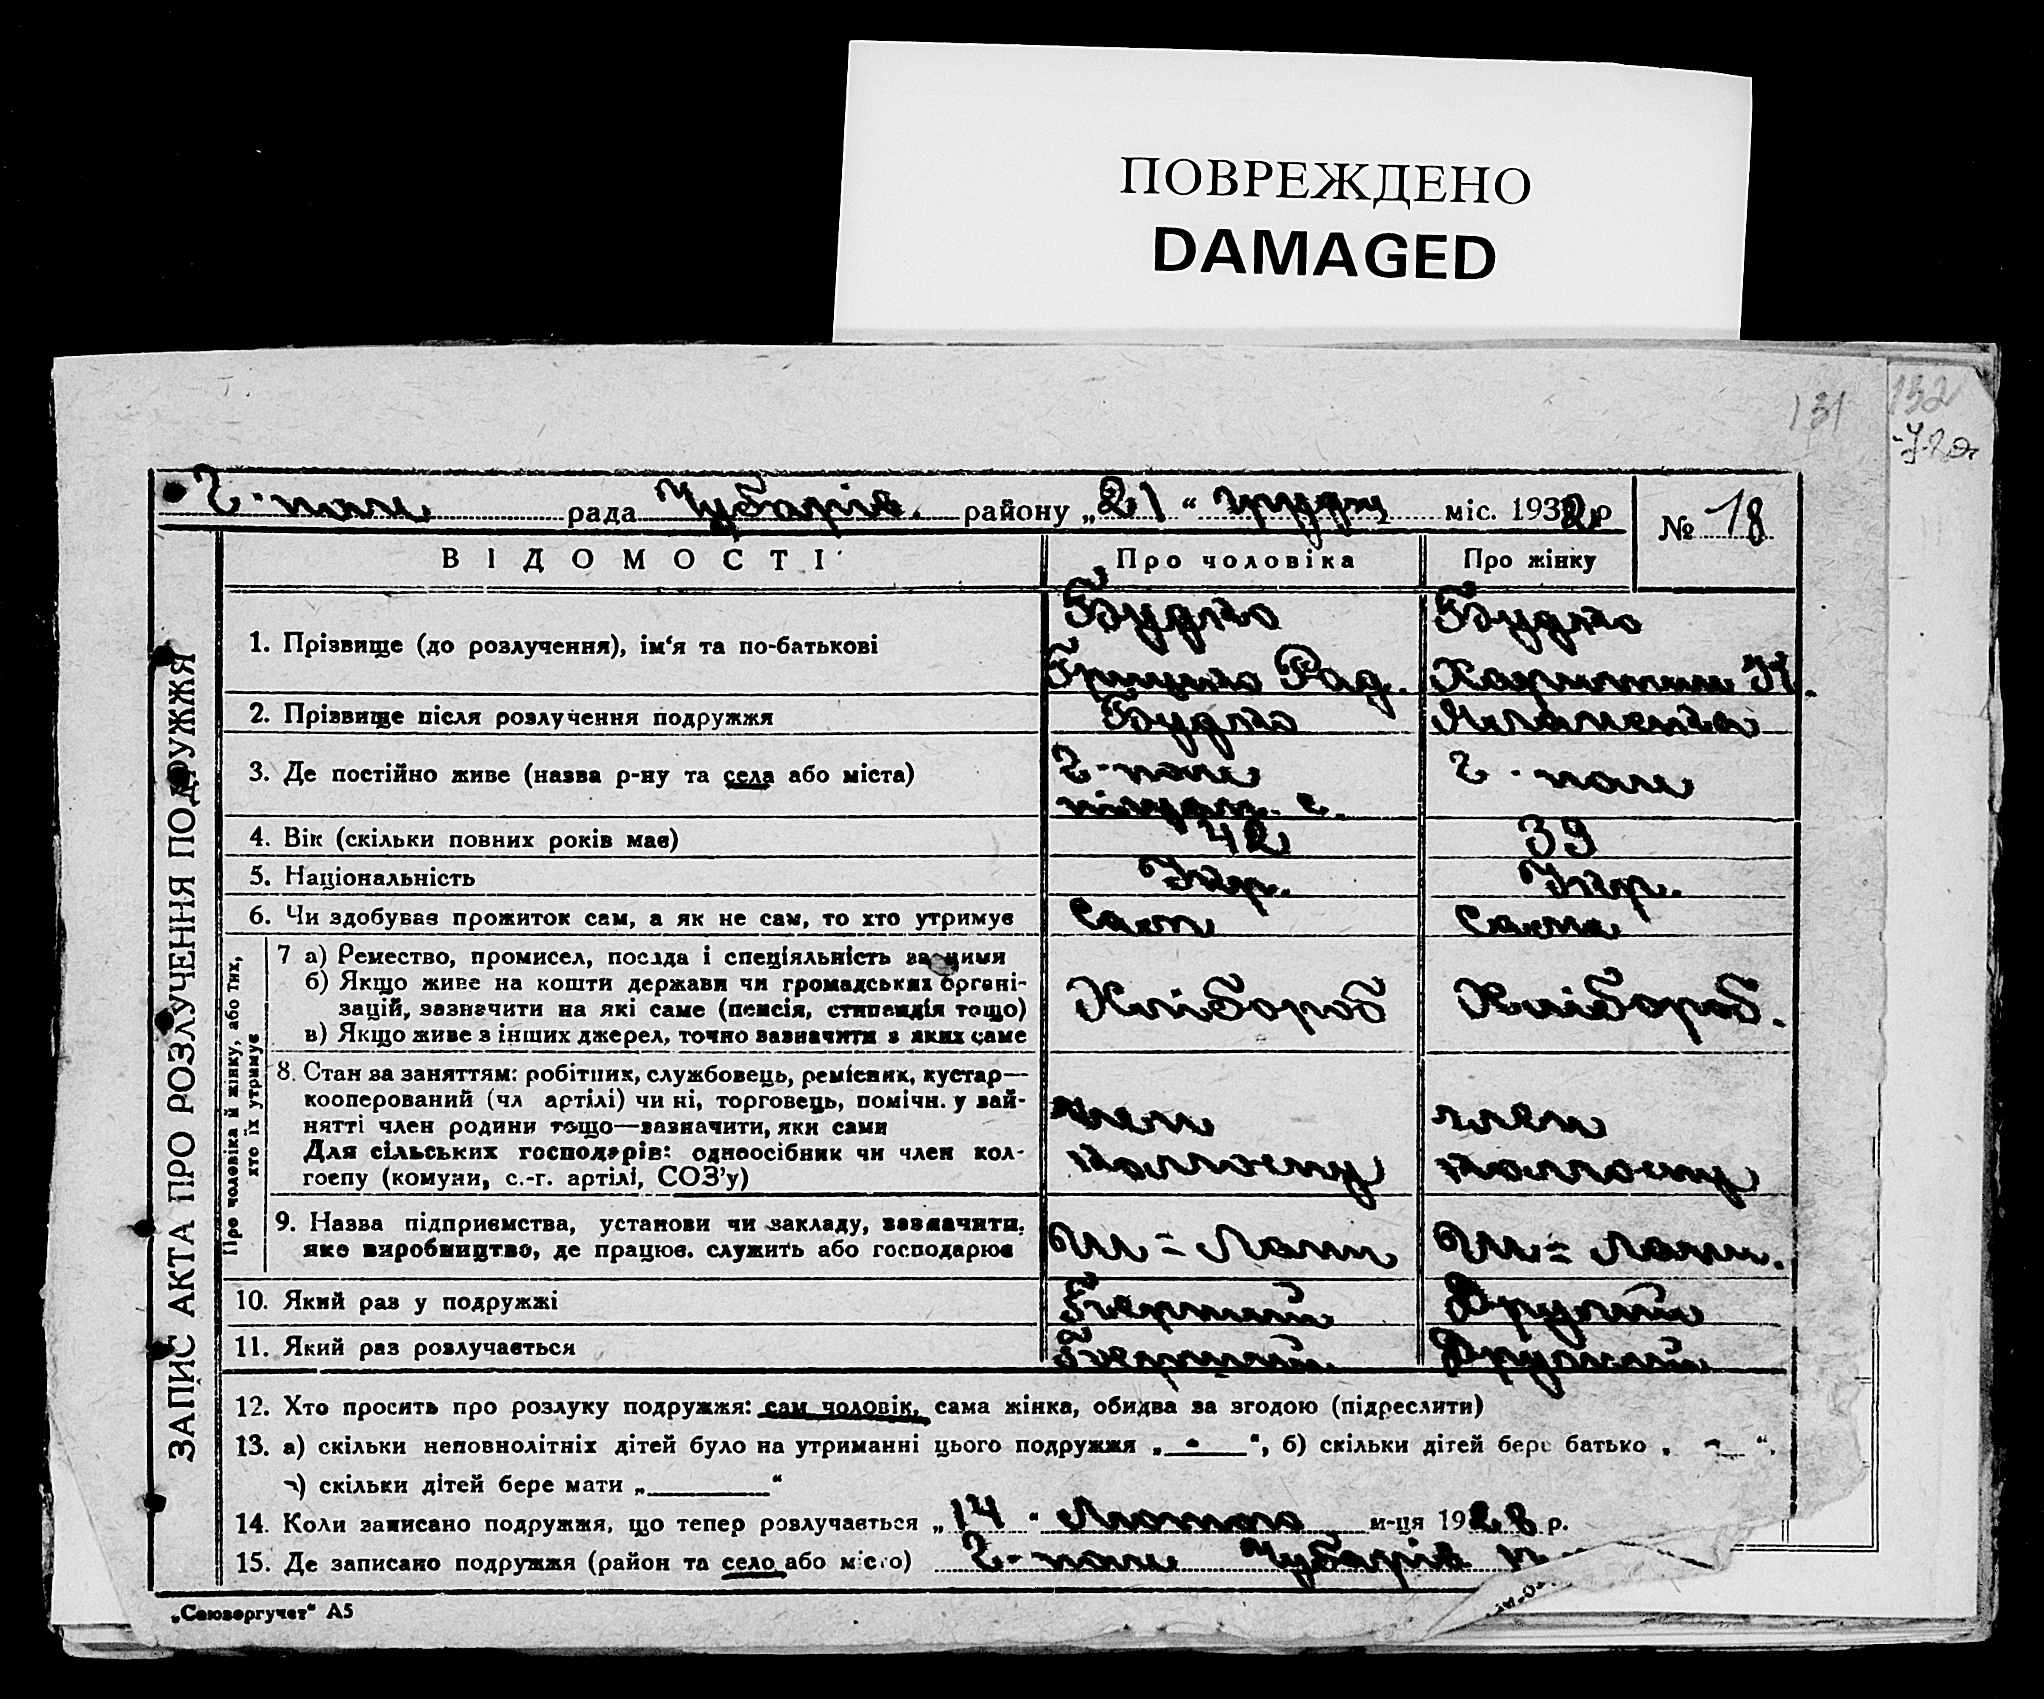 ПОВРЕЖДЕНО
DAMAGED
131
132
Г-поле рада Чубарів. району „21“ грудня міс. 1932 р
№ 18
ЗАПИС АКТА ПРО РОЗЛУЧЕННЯ ПОДРУЖЖЯ
ВІДОМОСТІ Про чоловіка Про жінку
1. Прізвище (до розлучення), ім‘я та по-батькові
Гудко
Грицько Рад.
Гудко
2. Прізвище після розлучення подружжя Гудко
3. Де постійно живе (назва р-ну та села або міста)
Г-поле
Г-поле
4. Вік (скільки повних років має) 42 39
5. Національність Укр. Укр.
6. Чи здобував прожиток сам, а як не сам, то хто утримує Сам Сама
Про чоловіка й жінку, або тих, хто їх утримує
7 а) Ремество, промисел, посада і спеціяльність за ними
б) Якщо живе на кошти держави чи громадських органі-
зацій, зазначити на які саме (пенсія, стипендія тощо)
в) Якщо живе з інших джерел, точно зазначити з яких саме
Хлібороб Хлібороб.
8. Стан за заняттям: робітник, службовець, ремісник, кустар—
кооперований (чл артілі) чи ні, торговець, помічн. у зай-
нятті член родини тощо—зазначити, яки сами
Для сільських господарів: одноосібник чи член кол-
госпу (комуни, с.-г. артілі, СОЗ’у)
член
колгоспу
член
колгоспу
9. Назва підприємства, установи чи закладу, зазначити.
яке виробництво, де працює. служить або господарює
10. Який раз у подружжі Перший Другий
11. Який раз розлучається Перший Другий
12. Хто просить про розлуку подружжя: сам чоловік, сама жінка, обидва за згодою (підреслити)
13. а) скільки неповнолітніх дітей було на утриманні цього подружжя „ - “, б) скільки дітей бере батько „ - “,
) скільки дітей бере мати „ “
14. Коли записано подружжя, що тепер розлучається „14“ Лютого м-ця 1928 р.
15. Де записано подружжя (район та село або місто) Г-поле Чубарів
„Союзоргучет“ А5